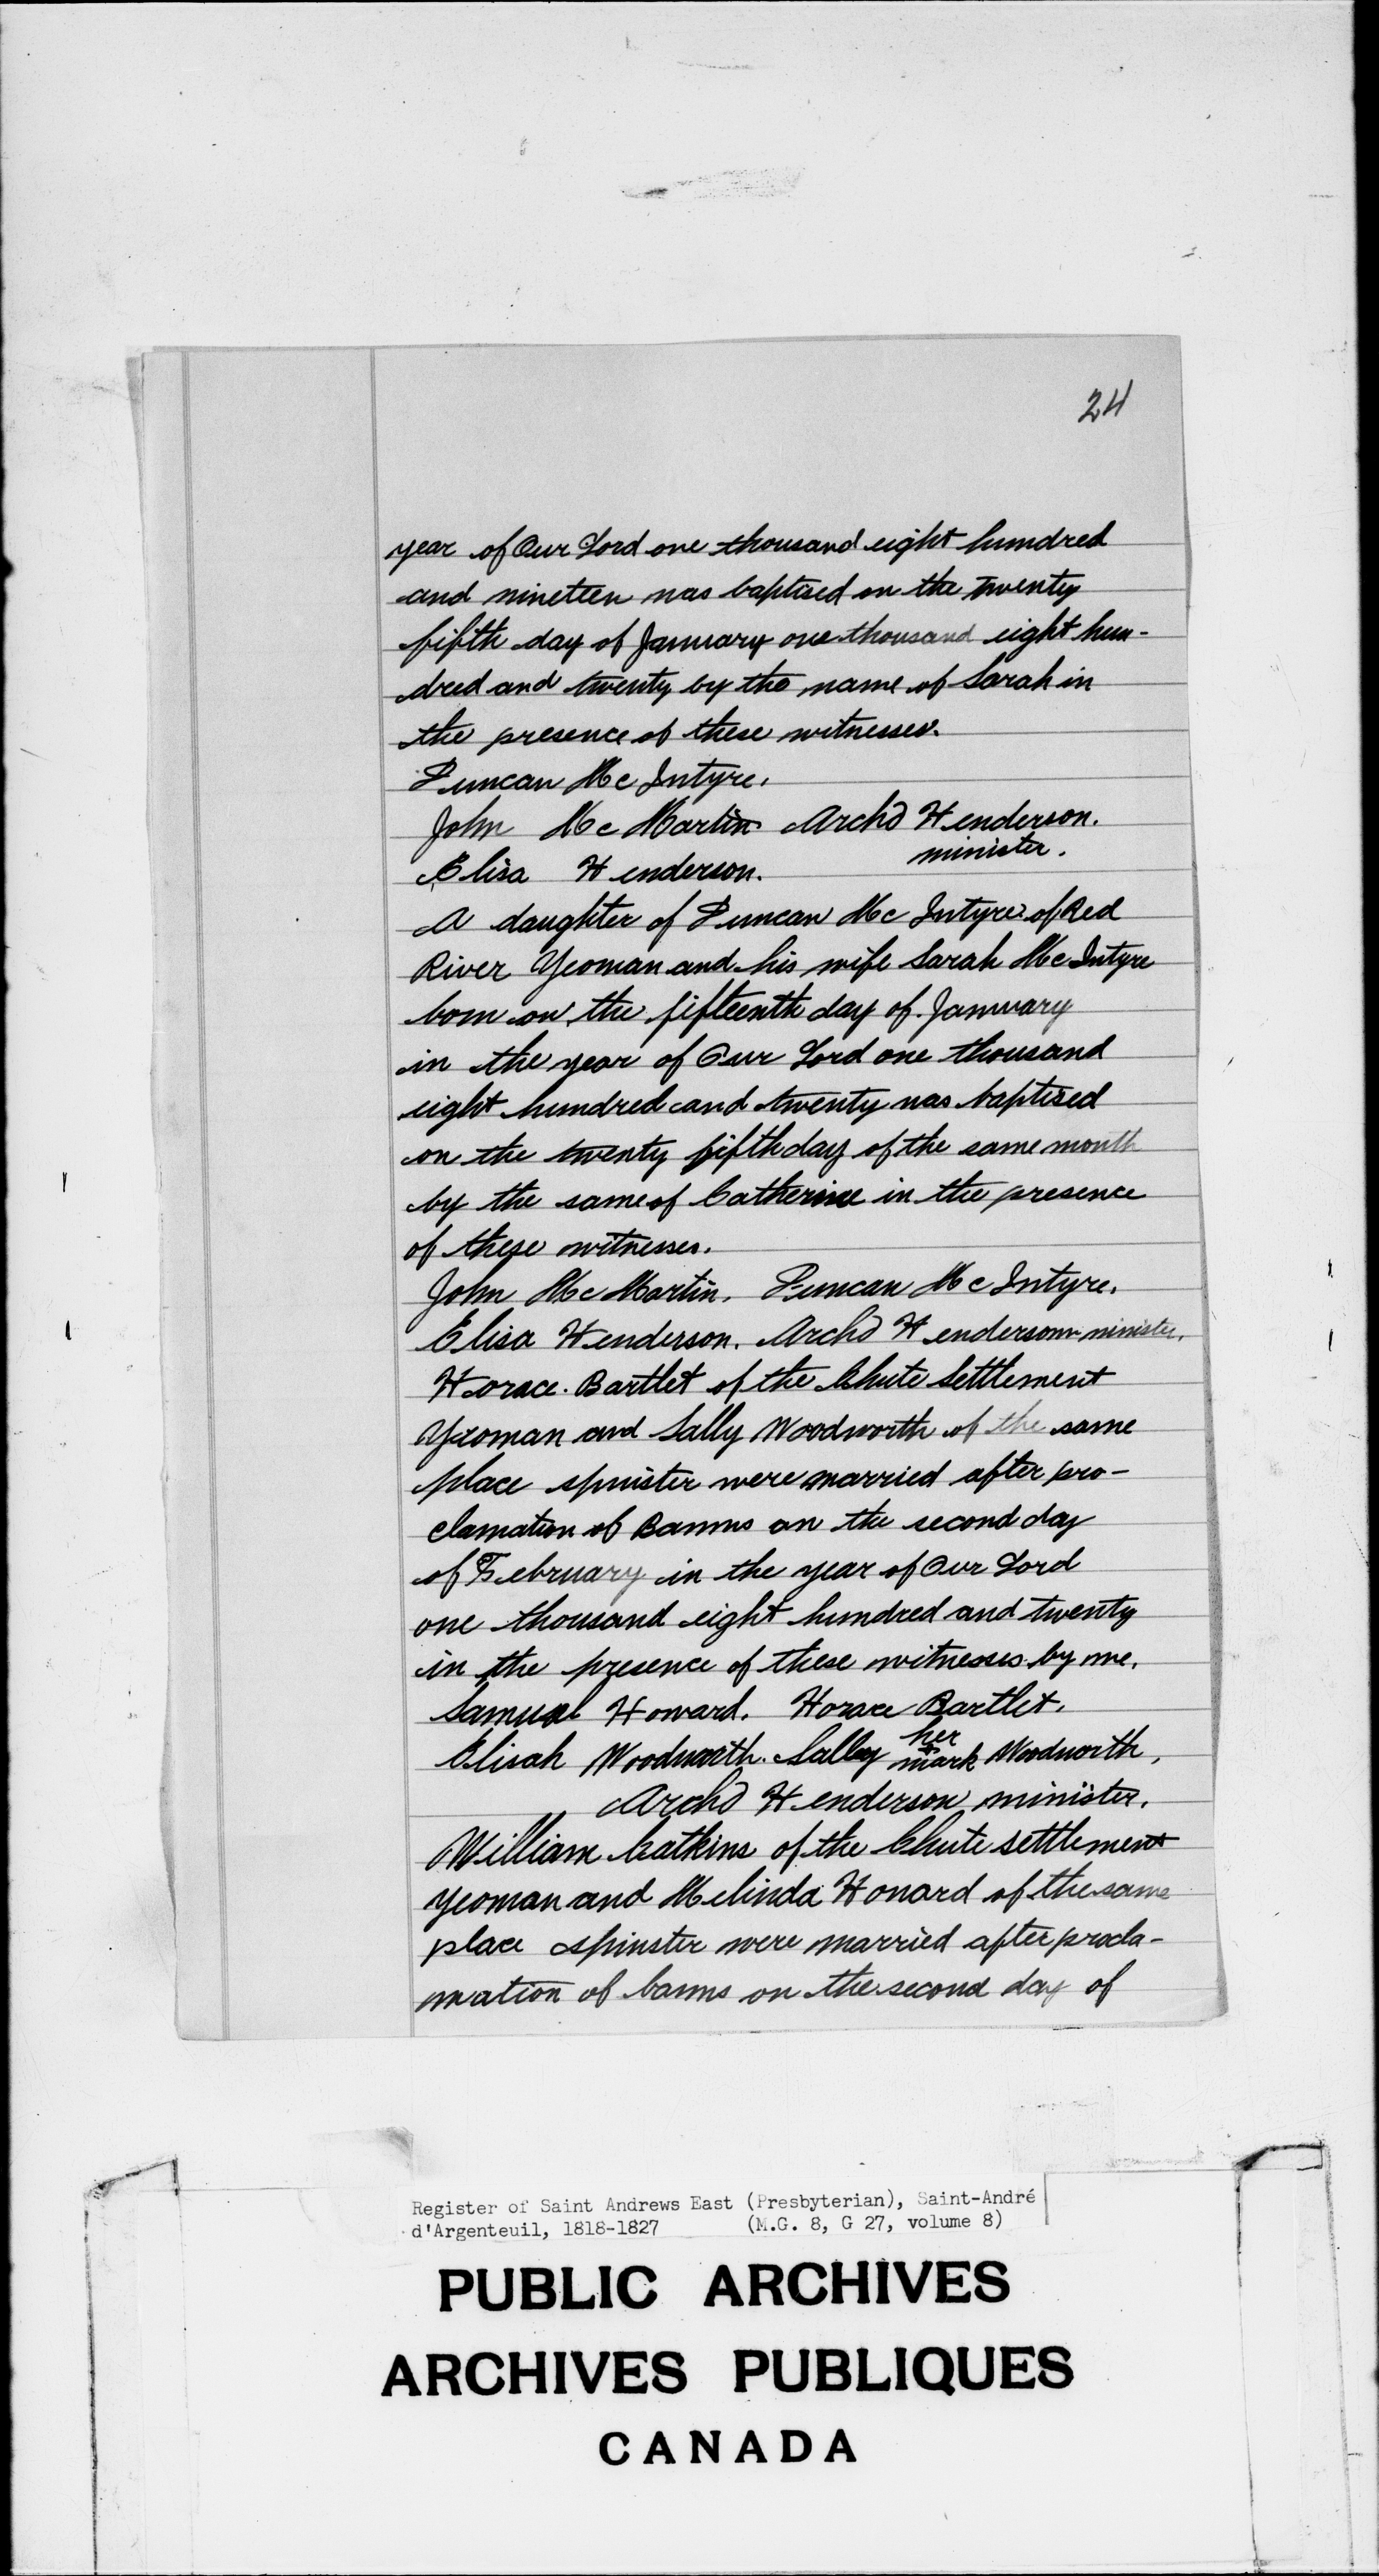 24
year of Our Lord one thousand eight hundred
and nineteen was baptised on the twenty
fifth day of January one thousand eight hun-
dred and twenty by the name of Sarah in
the presence of these witnesses.
Duncan Mc Intyre.
John Mc Martin Archd Henderson.
minister.
Elisa Henderson.
A daughter of Duncan Mc Intyre of Red
River Yeoman and his wife Sarah Mc Intyre
born on the fifteenth day of January
in the year of Our Lord one thousand
eight hundred and twenty was baptised
on the twenty fifth day of the same month
by the same of Catherine in the presence
of these witnesses.
John Mc Martin. Duncan Mc Intyre.
Elisa Henderson. Archd Henderson minister.
Horace Bartlet of the Chute Settlement
Yeoman and Sally Woodworth of the same
place spinster were married after pro-
clamation of Banns on the second day
of February in the year of Our Lord
one thousand eight hundred and twenty
in the presence of these witnesses by me.
Samuel Howard. Horace Bartlet.
Elisah Woodworth. Sally her + mark Woodworth,
Archd Henderson minister.
William Catkins of the Chute settlement
yeoman and Melinda Honard of the same
place spinster were married after procla-
mation of banns on the second day of
Register of Saint Andrews East (Presbyterian), Saint-André
d'Argenteuil, 1818-1827 (M.G. 8, G 27, volume 8)
PUBLIC ARCHIVES
ARCHIVES PUBLIQUES
CANADA